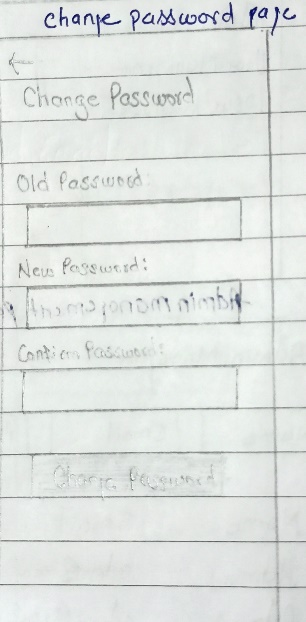 change password page
←
Change Password
Old Password:
New Password:
Confirm Password:
Change Password